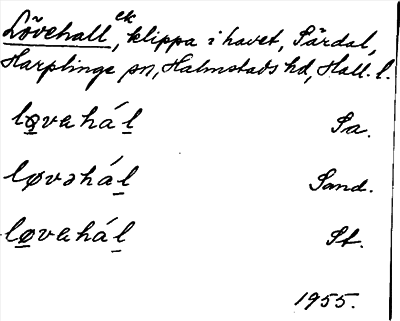 Lövehall ek, klippa i havet, Särdal,
Harplinge sn, Halmstads hd, Hall. l.
lø̱vaháḻ Sa.
løvəháḻ Sand.
lø̱vaháḻ St.
1955.